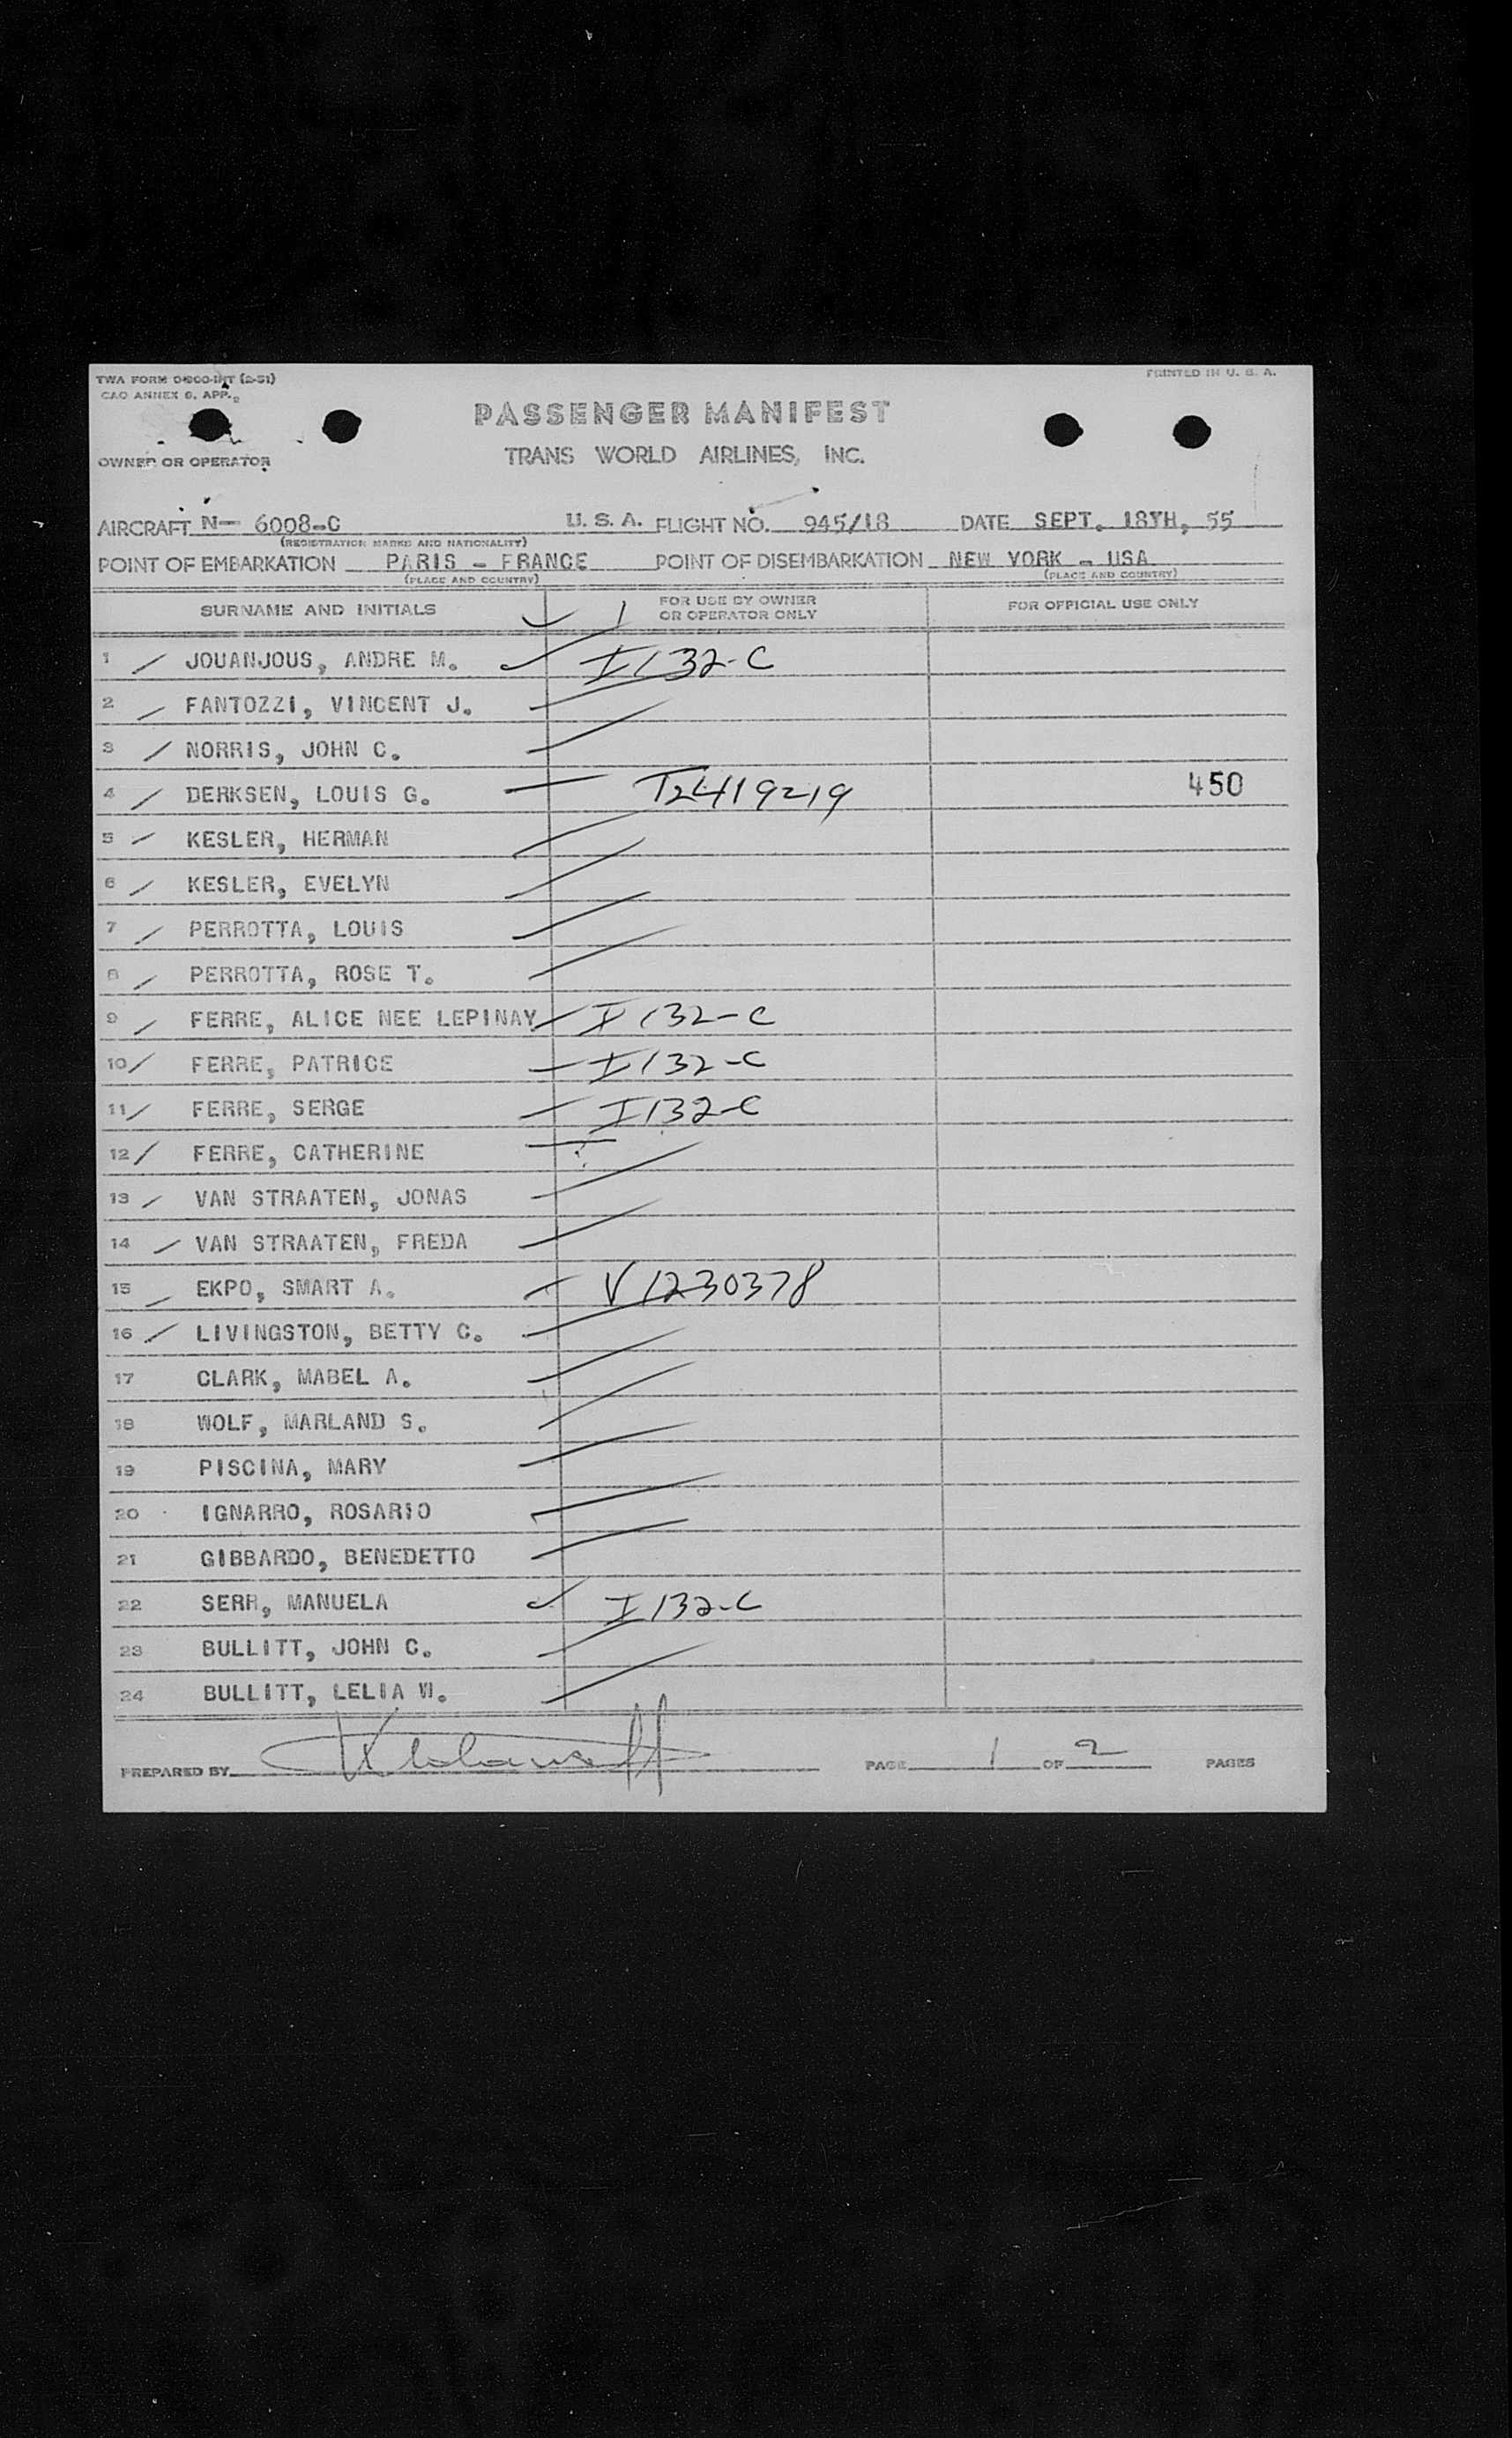 TWA FORM 0-800-INT (2-51)
PRINTED IN U. S. A.
CAO ANNEX 9, APP. 2
PASSENGER MANIFEST
OWNER OR OPERATOR
TRANS WORLD AIRLINES, INC.
AIRCRAFT N- 6008-C U. S. A. FLIGHT NO. 945/18 DATE SEPT. 18TH, 55
(REGISTRATION MARKS AND NATIONALITY)
POINT OF EMBARKATION PARIS - FRANCE POINT OF DISEMBARKATION NEW YORK - USA
(PLACE AND COUNTRY) (PLACE AND COUNTRY)
SURNAME AND INITIALS FOR USE BY OWNER OR OPERATOR ONLY FOR OFFICIAL USE ONLY
1 JOUANJOUS, ANDRE M. I132-C
2 FANTOZZI, VINCENT J.
3 NORRIS, JOHN C.
4 DERKSEN, LOUIS G. T2419219 450
5 KESLER, HERMAN
6 KESLER, EVELYN
7 PERROTTA, LOUIS
8 PERROTTA, ROSE T.
9 FERRE, ALICE NEE LEPINAY I132-C
10 FERRE, PATRICE I132-C
11 FERRE, SERGE I132-C
12 FERRE, CATHERINE
13 VAN STRAATEN, JONAS
14 VAN STRAATEN, FREDA
15 EKPO, SMART A. V1230378
16 LIVINGSTON, BETTY C.
17 CLARK, MABEL A.
18 WOLF, MARLAND S.
19 PISCINA, MARY
20 IGNARRO, ROSARIO
21 GIBBARDO, BENEDETTO
22 SERR, MANUELA I132-C
23 BULLITT, JOHN C.
24 BULLITT, LELIA W.
PREPARED BY PAGE 1 OF 2 PAGES